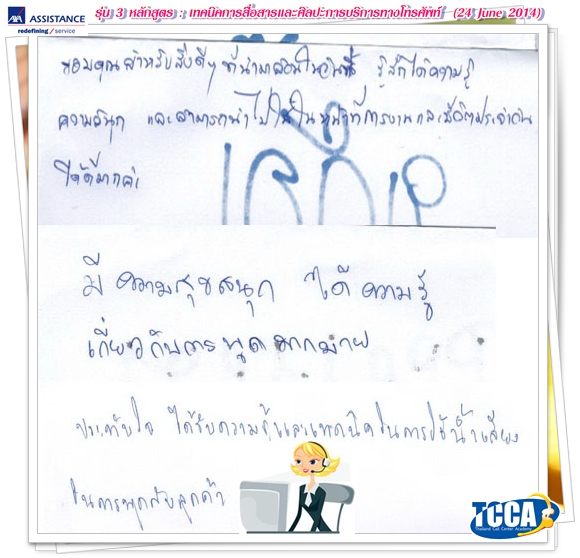 รุ่น 3 หลักสูตร : เทคนิคการสื่อสารและศิลปะการบริการทางโทรศัพท์ (24 June 2014)
AXA ASSISTANCE
redefining / service
ขอบคุณสำหรับสิ่งดีๆ ที่นำมาสอนในวันนี้ รู้สึกได้ความรู้
ความสนุก และสามารถนำไปใช้ในหน้าที่การงานและชีวิตประจำวัน
ได้ดีมากค่ะ
มีความสุขสนุก ได้ความรู้
เกี่ยวกับการพูดมากมาย
ประทับใจ ได้รับความรู้และเทคนิคในการใช้น้ำเสียง
ในการพูดกับลูกค้า
TCCA
Thailand Call Center Academy